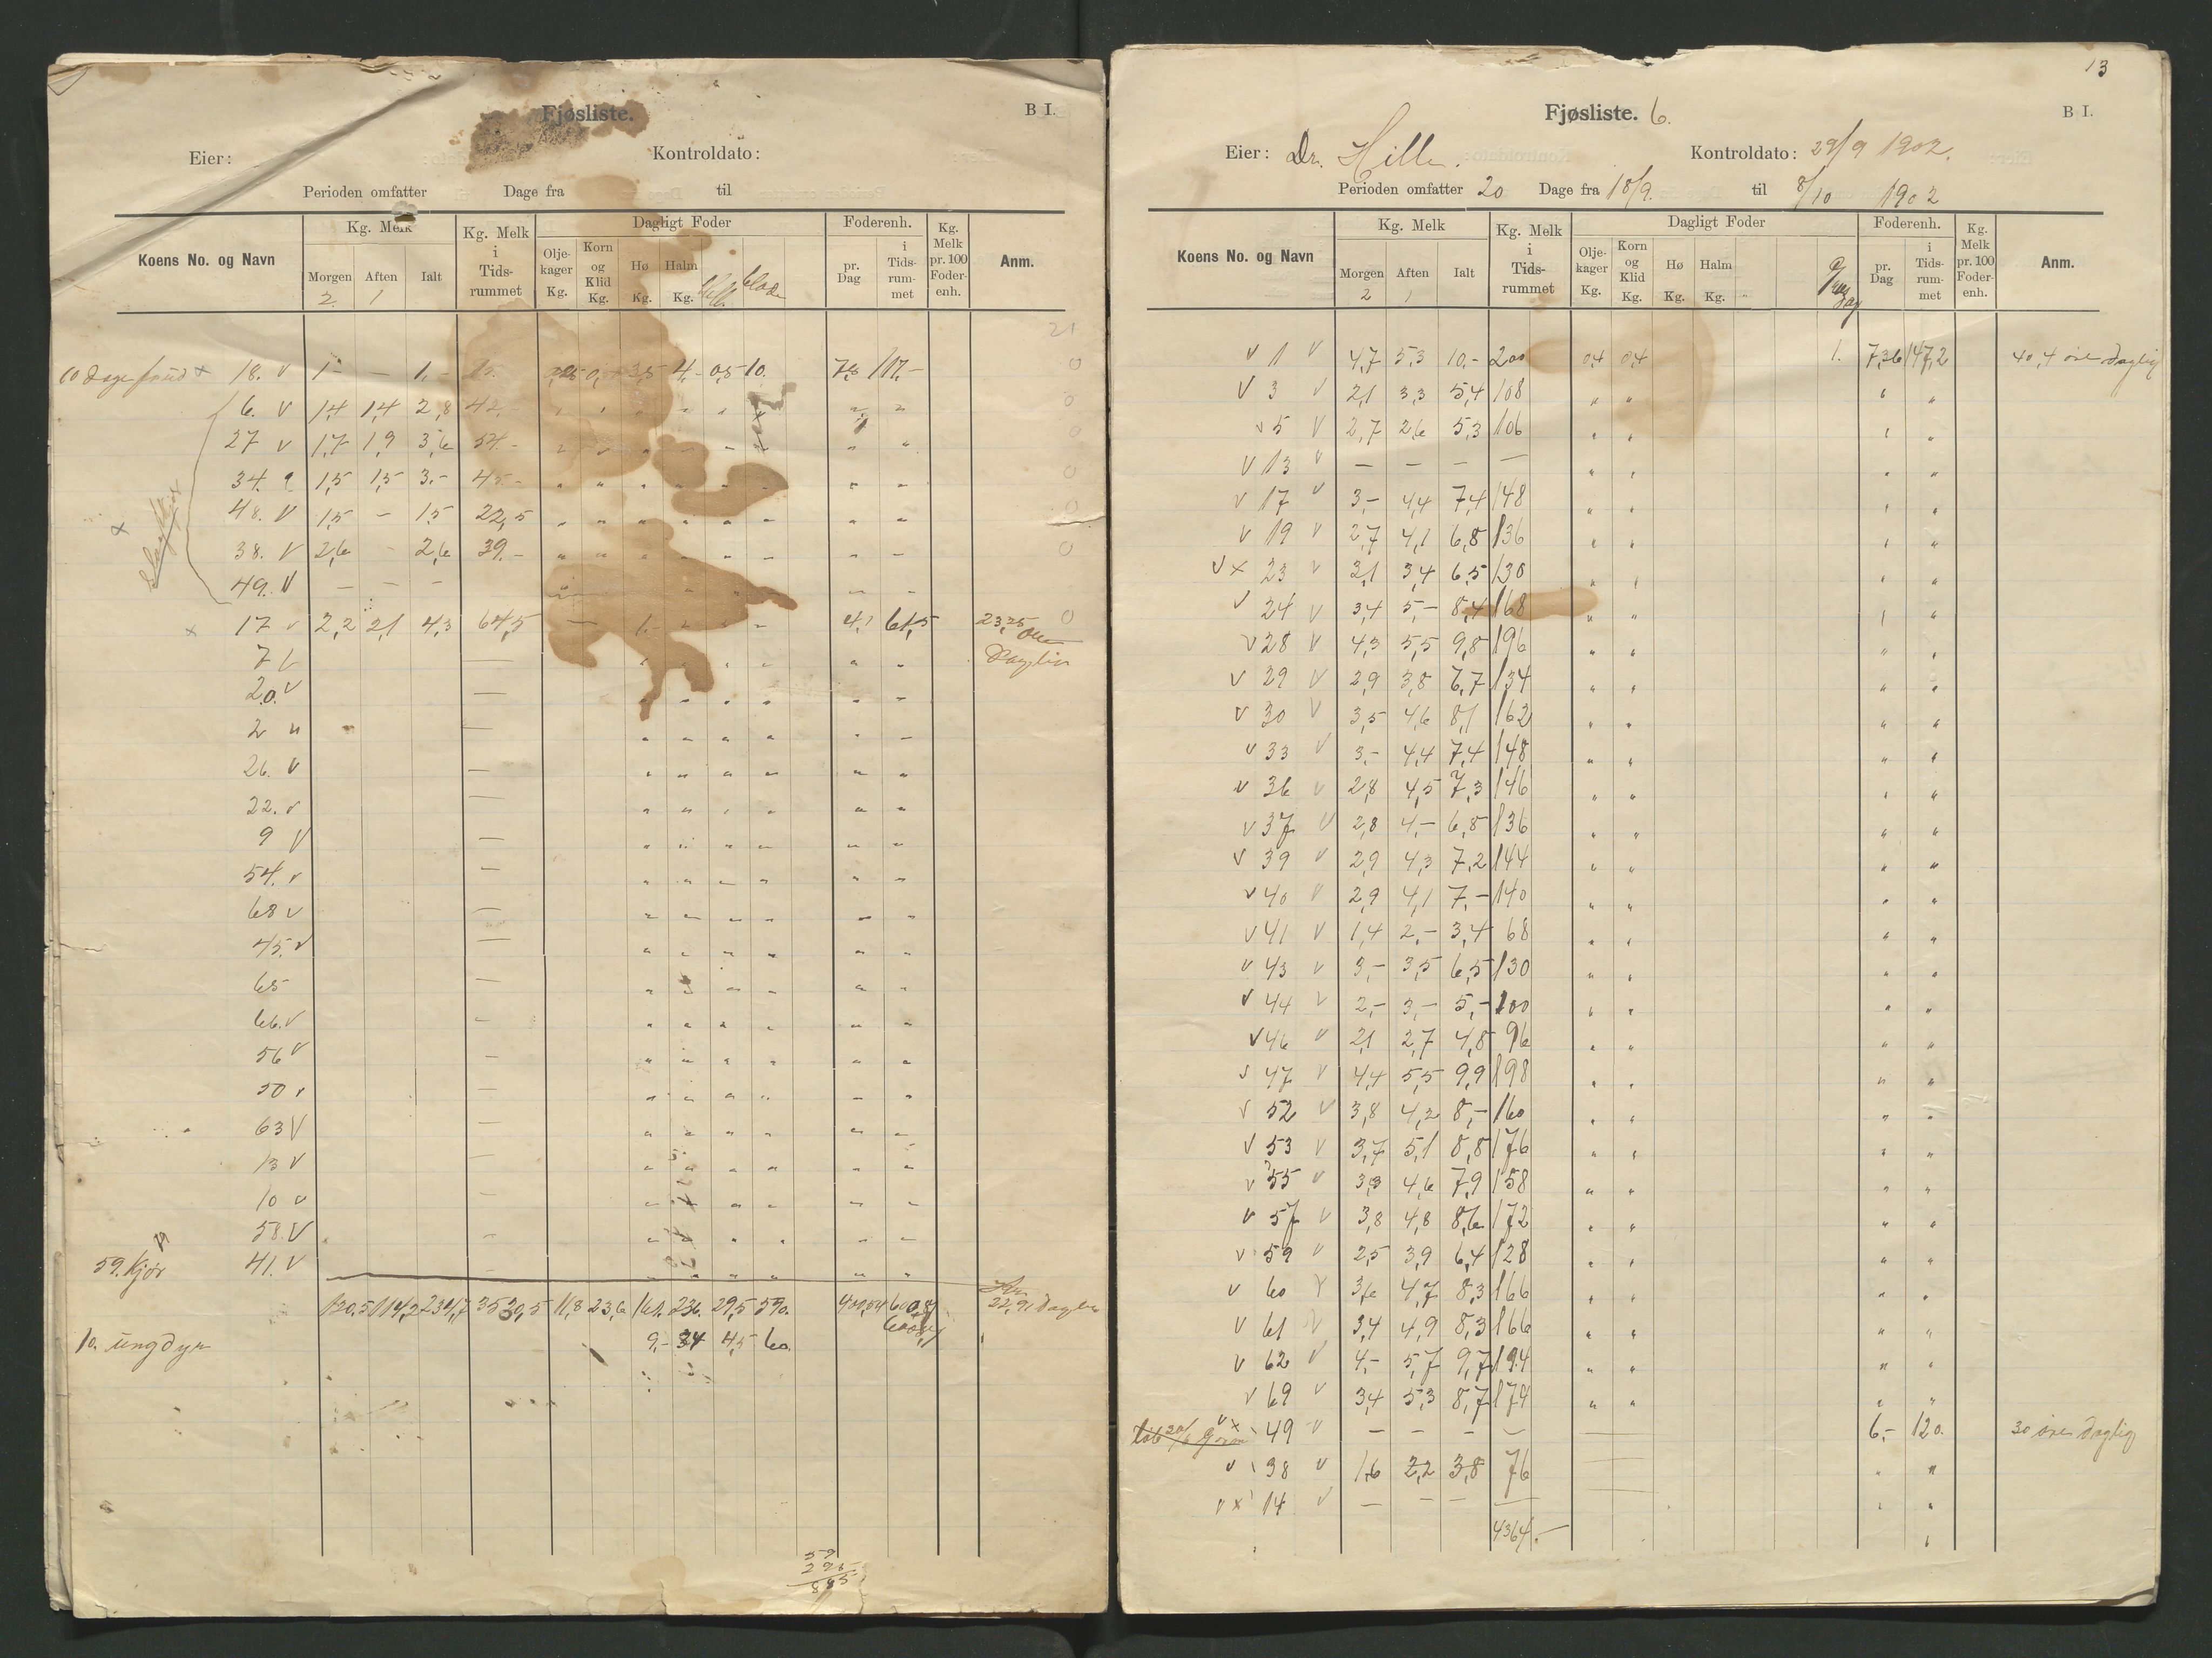 Fjøsliste.
B I.
Eier:
Kontroldato:
Perioden omfatter Dage fra til
Koens No. og Navn
Kg. Melk
Morgen Aften Ialt
2 1
Kg. Melk i Tids-rummet
Dagligt Foder
Olje-kager Kg.
Korn og Klid Kg.
Hø Kg.
Halm Kg.
Foderenh.
pr. Dag
i Tids-rum-met
Kg. Melk pr. 100 Foder-enh.
Anm.
21
18. V 1 - - 1,- 4,- 0,5 10. 117,- 0
6. V 1,4 1,4 2,8 42,- " " 0
27 V 1,7 1,9 3,6 54,- " " 0
34. 1,5 1,5 3,- 45,- " " 0
48. V 1,5 - 1,5 22,5 " " 0
38. V 2,6 - 2,6 39.- " " 0
49. V - - - " "
x 17 v 2,2 2,1 4,3 64,5 - 1,- " " " 4,1 61,5 23,25 0
7 V - " " " " " "
20. V - " " " " " "
2 " - " " " " " "
26. V - " " " " " "
22. v - " " " " " "
9 V - " " " " " "
54. v - " " " " " "
68 v - " " " " " "
45. V - " " " " " "
65 - " " " " " "
66. V - " " " " " "
56 V - " " " " " "
50 v - " " " " " "
63 V - " " " " " "
13 V - " " " " " "
10 v - " " " " " "
58. V - " " " " " "
59. Kjør 41. V - " " " " " "
120.5 114,2 234,7 3520,5 11,8 23,6 161. 236. 29,5 590.
10. ungdyr 9,- 24 4,5 60.
59
295
885
13
Fjøsliste. 6.
B I.
Eier: Dr. Hille. Kontroldato: 29/9 1902.
Perioden omfatter 20 Dage fra 18/9. til 8/10 1902
Koens No. og Navn
Kg. Melk
Morgen Aften Ialt
2 1
Kg. Melk i Tids-rummet
Dagligt Foder
Olje-kager Kg.
Korn og Klid Kg.
Hø Kg.
Halm Kg.
Foderenh.
pr. Dag
i Tids-rum-met
Kg. Melk pr. 100 Foder-enh.
Anm.
V 1 V 4,7 5,3 10,- 200 0,4 0,4 1. 7,36 147,2 40,4 øre daglig
V 3 V 2,1 3,3 5,4 108 " " " "
v 5 V 2,7 2,6 5,3 106 " " " "
V 13 V - - - - " " " "
v 17 V 3,- 4,4 7,4 148 " " " "
V 19 V 2,7 4,1 6,8 136 " " " "
V x 23 v 3,1 3,4 6,5 130 " " " "
V 24 V 3,4 5,- 8,4 168 " " " "
V 28 V 4,3 5,5 9,8 196 " " " "
V 29 V 2,9 3,8 6,7 134 " " " "
V 30 V 3,5 4,6 8,1 162 " " " "
v 33 V 3,- 4,4 7,4 148 " " " "
v 36 V 2,8 4,5 7,3 146 " " " "
v 37 V 2,8 4,- 6,8 136 " " " "
V 39 V 2,9 4,3 7,2 144 " " " "
V 40 V 2,9 4,1 7,- 140 " " " "
V 41 V 1,4 2,- 3,4 68 " " " "
V 43 V 3,- 3,5 6,5 130 " " " "
V 44 V 2,- 3,- 5,- 100 " " " "
V 46 V 2,1 2,7 4,8 96 " " " "
V 47 V 4,4 5,5 9,9 198 " " " "
V 52 V 3,8 4,2 8,- 160 " " " "
V 53 V 3,7 5,1 8,8 176 " " " "
v 55 V 3,3 4,6 7,9 158 " " " "
V 57 V 3,8 4,8 8,6 172 " " " "
v 59 V 2,5 3,9 6,4 128 " " " "
V 60 V 3,6 4,7 8,3 166 " " " "
V 61 V 3,4 4,9 8,3 166 " " " "
V 62 V 4,- 5,7 9,7 194 " " " "
V 69 V 3,4 5,3 8,7 174 " " " "
v x 49 V - - - - - 6,- 120. 30 øre daglig
V 38 V 1,6 2,2 3,8 76 - " "
v x 14 V - - - - - " "
4364.-